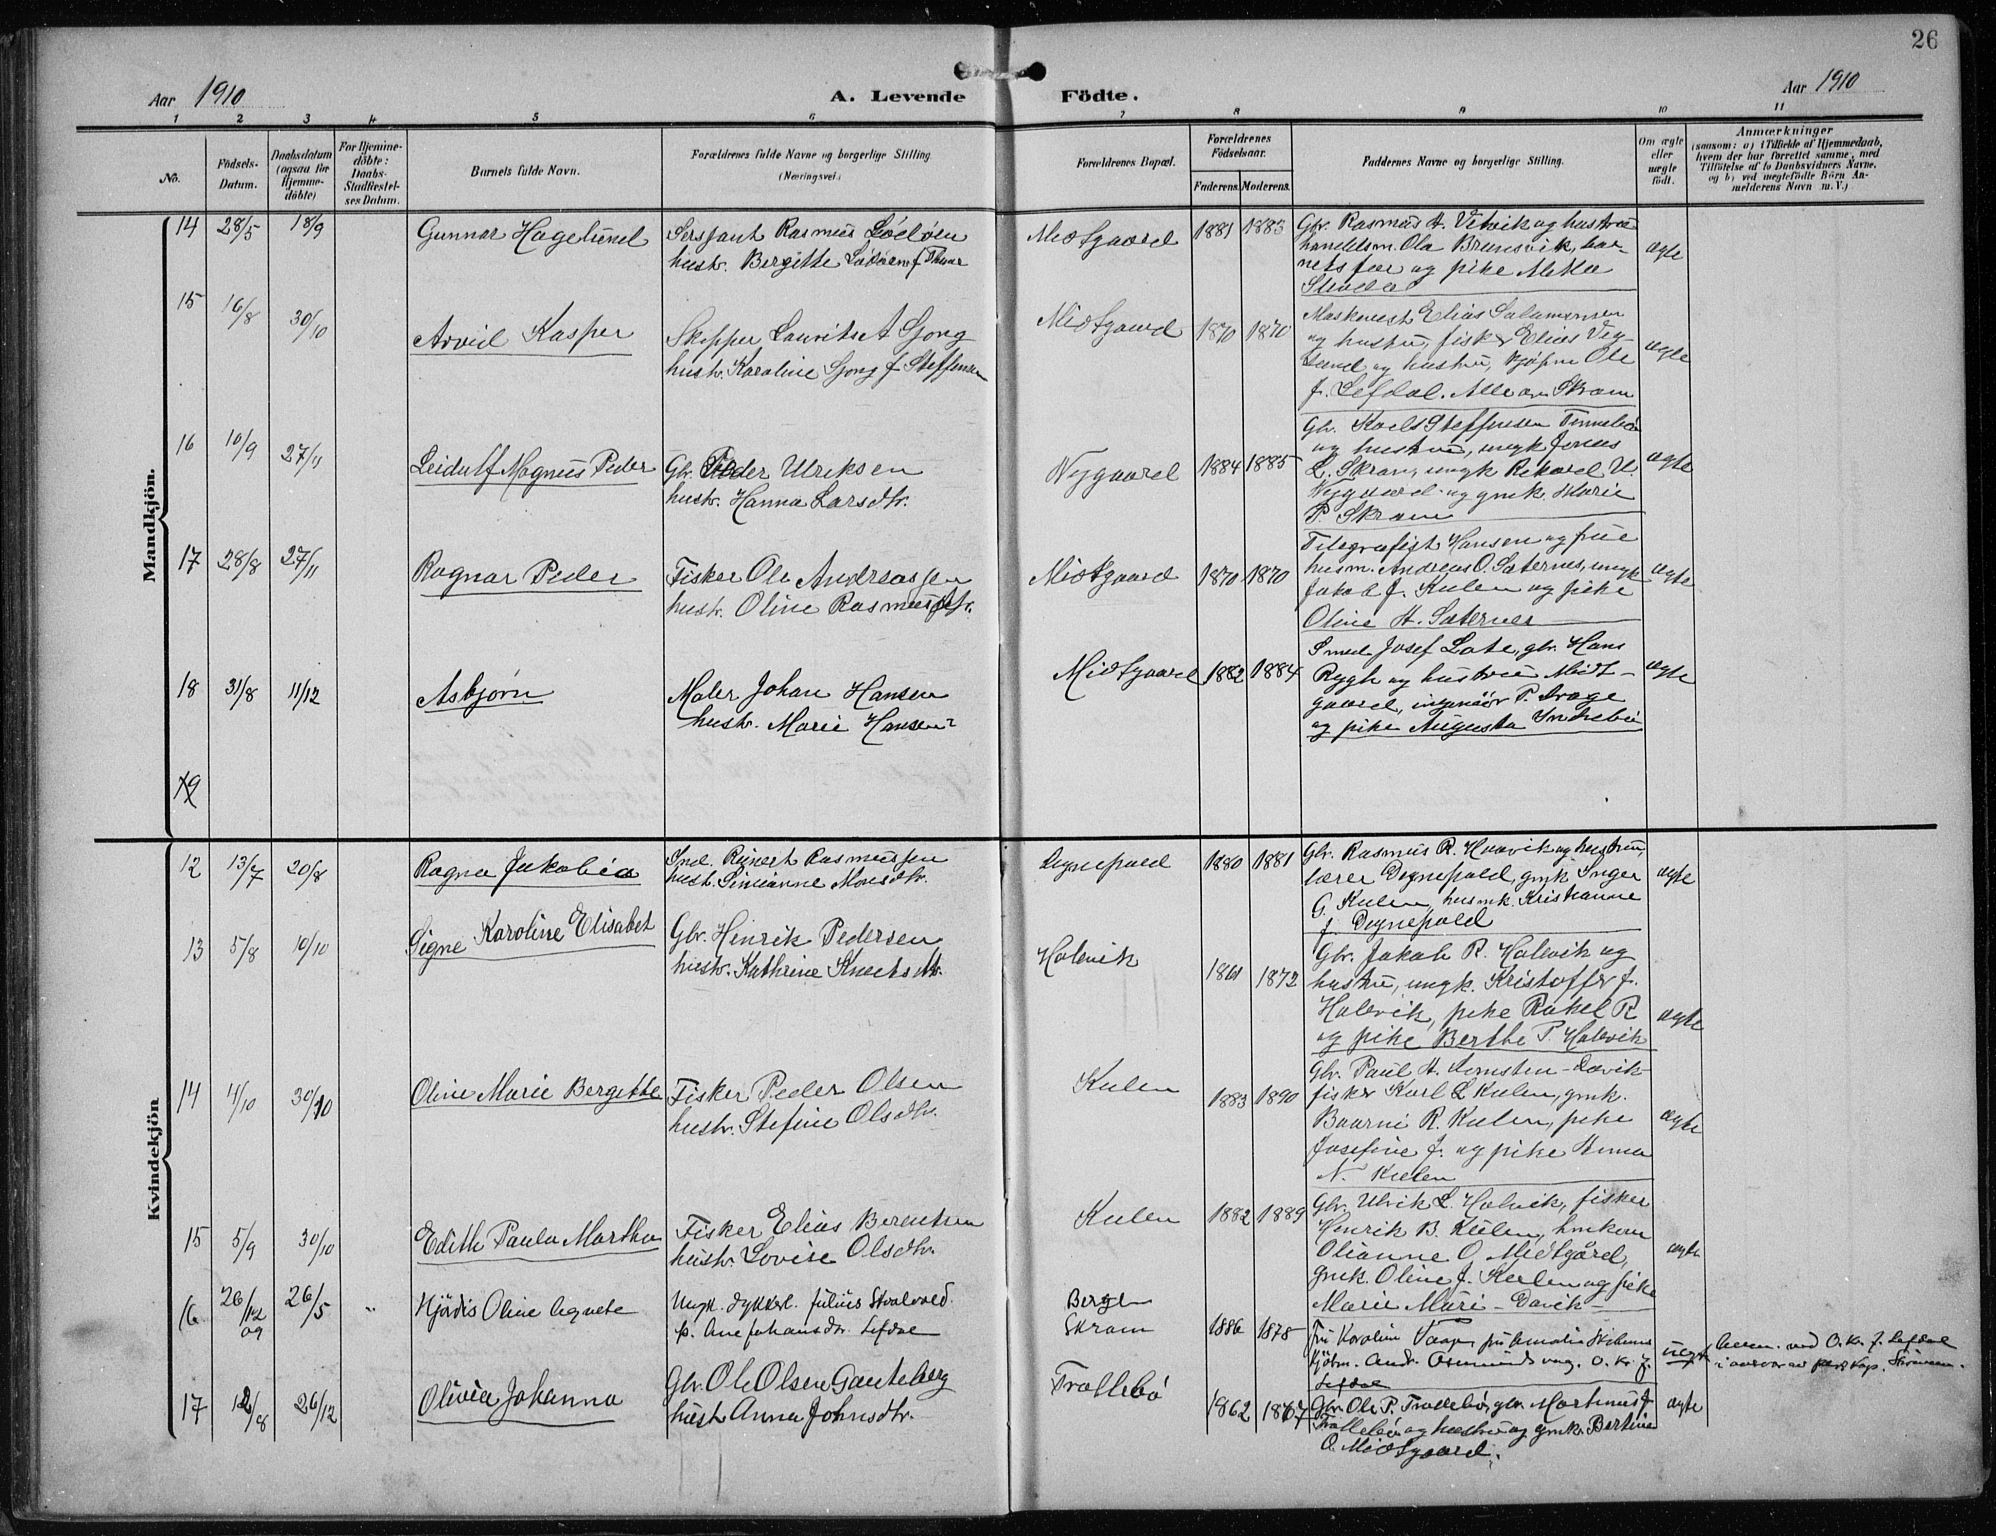 26
Aar 1910
A. Levende Födte.
Aar 1910
1 2 3 4 5 6 7 8 9 10 11
No.
Födsels-Datum.
Daabsdatum (ogsaa for Hjemme-döbte)
For Hjemme-döbte: Daabs-Stadfæstel-ses Datum.
Barnets fulde Navn.
Forældrenes fulde Navne og borgerlige Stilling.
(Næringsvei.)
Forældrenes Bopæl.
Forældrenes Födselsaar.
Faderens. Moderens.
Faddernes Navne og borgerlige Stilling.
Om ægte eller uægte födt.
Anmærkninger
(saasom: a) i Tilfælde af Hjemmedaab, hvem der har forrettet samme, med Tilföielse af to Daabsvidners Navne, og b) ved uægtefödte Börn An-melderens Navn m. V.)
Mandkjön.
14 28/5 18/9 Gunnar Hagelund
Sersjant Rasmus
hustr. Bergitte
Midtgaard 1881 1883
Gbr. Rasmus H. Vetvik og hustru
handelsm. Ola Brunsvik, bar-
nets far og pike
ægte
15 16/8 30/10 Arvid Kasper
Skipper Laurits A Gjong
hustr. Karoline Gjong f Steffensen
Midtgaard 1870 1870
Maskinist Elias Salamonsen
og hustru, fisker Elias Veg-
sund og hustru, kjøpm Ole
J. Lefdal. Alle av Skram
ægte
16 10/9 27/11 Leidulf Magnus Peder
Gbr. Peder Ulriksen
hustr. Hanna Larsdtr.
Nygaard 1884 1885
Gbr. Karl Steffensen
og hustru, ungk Jonas
L. Skram, ungk Rikard U.
Nygaard og gmk. Marie
P. Skram
ægte
17 28/8 27/11 Ragnar Peder
Fisker Ole Andreassen
hustr. Oline Rasmusdtr.
Midtgaard 1870 1870
Telegrafist Hansen og frue
husm. Andreas O. Sæternes, ungk
Jakob J. Kulen og pike
Oline H. Sæternes
ægte
18 31/8 11/12 Asbjørn
Maler Johan Hansen
hustr. Marie Hansen
Midtgaard 1882 1884
Smed Josef Lote, gbr. Hans
Rygh og hustru Midt-
gaard, ingeniör P. Drage
og pike Augusta Indrebö
ægte
19
Kvindekjön
12 13/7 20/8 Ragna Jakobia
Ind. Reinert Rasmussen
hust. Simianne Monsdtr.
Degnepold 1880 1881
Gbr. Rasmus R. Haavik og hustru,
lærer Degnepold, gmk Inger
G. Kulen, husmk. Kristianne
J. Degnepold
ægte
13 5/8 10/10 Signe Karoline Elisabet
Gbr. Henrik Pedersen
hustr. Kathrine Knutsdtr.
Holevik 1861 1872
Gbr. Jakob R. Holevik og
hustru, ungk. Kristoffer J.
Holevik, pike Rakel R
og pike Berthe P. Holevik
ægte
14 4/10 30/10 Oline Marie Bergitte
Fisker Peder Olsen
hustr. Stefine Olsdtr.
Kulen 1883 1890
Gbr. Paul H. - Davik-
fisker Karl L Kulen, gmk.
Baarni R. Kulen, pike
Josefine J. og pike Anna
N. Kulen
ægte
15 5/9 30/10 Edith Paula Martha
Fisker Elias Berentsen
hustr. Lovise Olsdtr.
Kulen 1882 1889
Gbr. Ulrik L. Holevik, fisker
Henrik B. Kulen,
Olianne O. Midtgård,
gmk. Oline J. Kulen og pike
Marie Muri - Davik-
ægte
16 26/12 09 26/5 " Hjördis Oline Agnete
Ungk. dykker Julius Stralved.
p. Ane Johansdtr. Lefdal
Bergen
Skram 1886 1878
Fru Karoline
Kjöbm. Andr. ung. O. Kr. J.
Lefdal
uægte
Anm. ved O. Kr. J. Lefdal
17 12/8 26/12 Olivia Johanna
Gbr. Ole Olsen Gauteberg
hust Anna Johnsdtr.
Trollebö 1862 1867
Gbr. Ole P. Trollebö, gbr. Martinus J
Trollebö og hustru og gmk. Bertine
O. Midtgaard.
ægte